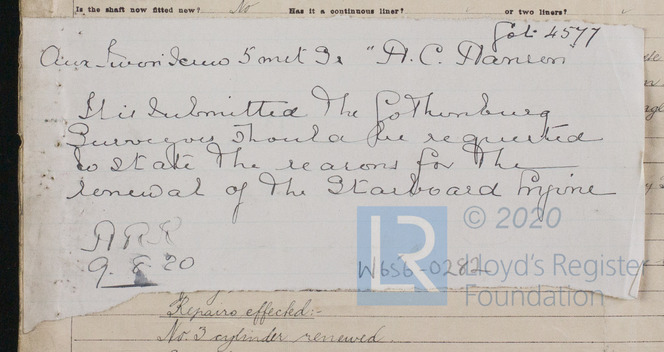 Is the shaft now fitted new? No Has it a continuous liner? or two liners?
Got. 4577
Aux Twin Screw 5 mst Sr "H. C. Hansen"
It is submitted the Gothenburg
Surveyors should be requested
to state the reasons for the
renewal of the Starboard Engine
9. 8. 20
W656-0282
LR © 2020
Lloyd's Register
Foundation
Repairs effected:-
No. 3 cylinder renewed.